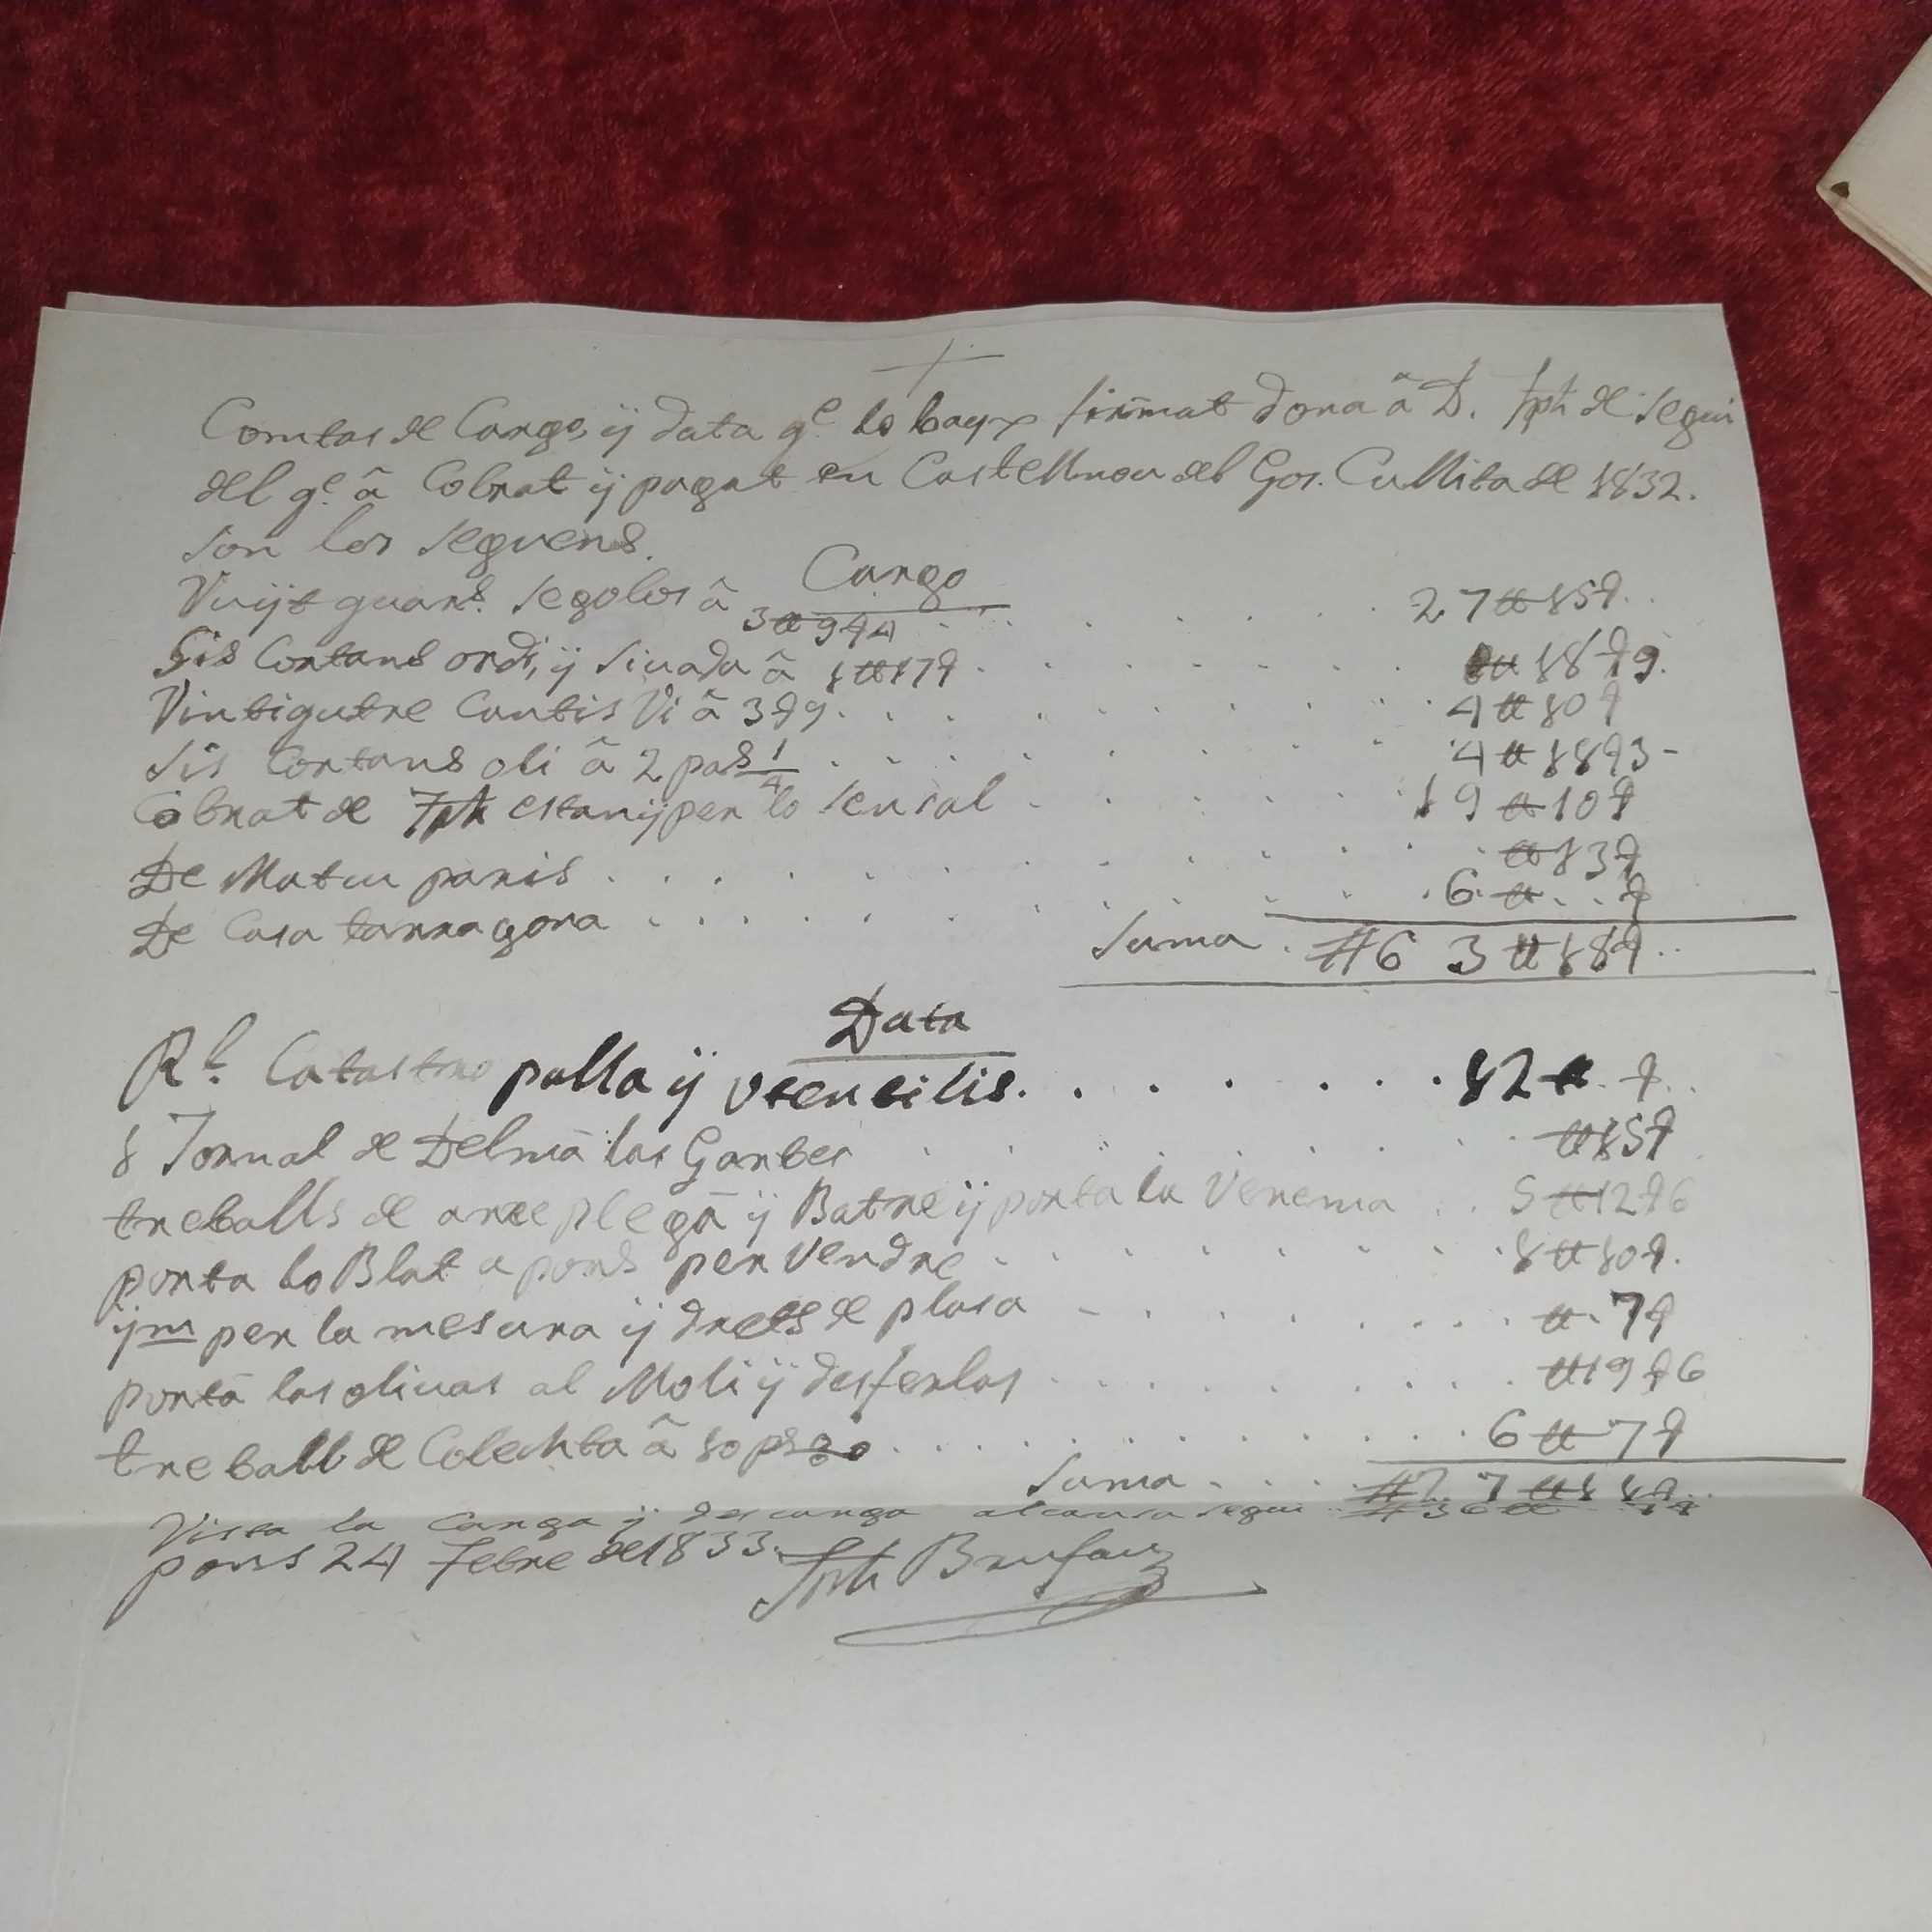 +
Comtas de Cargo, ÿ data qe. lo bayx firmat dona â D. Jph de Segui
del qe. â Cobrat ÿ pagat en Castellnou del Gos. Cullita de 1832.
son los seguens.
Cargo
Vuÿt quans. segolos â 3 ₶ 9 ʄ 4 . . . . . 27 ₶ 15 ʄ . .
Sis Cortans ordi, ÿ sivada â 1 ₶ 17 ʄ . . . . . ₶ 18 ʄ 9.
Vintiquatre Cantis Vi â 3 ʄ 9 . . . . . 4 ₶ 10 ʄ
sis Cortans oli â 2 pas 1/4 . . . . . 4 ₶ 18 ʄ 3 -
Cobrat de Jph estanÿ per lo sensal . . . . . 19 ₶ 10 ʄ
De Mateu panis . . . . . ₶ 13 ʄ
De Casa tarragona . . . . . 6 ₶ . . ʄ
Suma . # 6 3 ₶ 18 ʄ . .
Data
Rl. Catastro palla ÿ vtencilis . . . . . 12 ₶ . ʄ . .
1 Jornal de Delmâ las Garbes . . . . . ₶ 15 ʄ
treballs de arreplegâ ÿ Batre ÿ porta la Verema . . 5 ₶ 12 ʄ 6
porta lo Blat a pons per vendre . . . . . 1 ₶ 10 ʄ.
ÿm per la mesura ÿ drets de plasa - . . . . . ₶ . 7 ʄ
portâ las olivas al Moli ÿ desferlas . . . . . ₶ 19 ʄ 6
treball de Colechta â 10 ps %o . . . . . 6 ₶ 7 ʄ
Suma . . . . # 2 7 ₶ 11 ʄ . .
Vista la Carga ÿ descarga alcansa segui . . # 36 ₶
pons 24 Febre de 1833. Jph Brufau